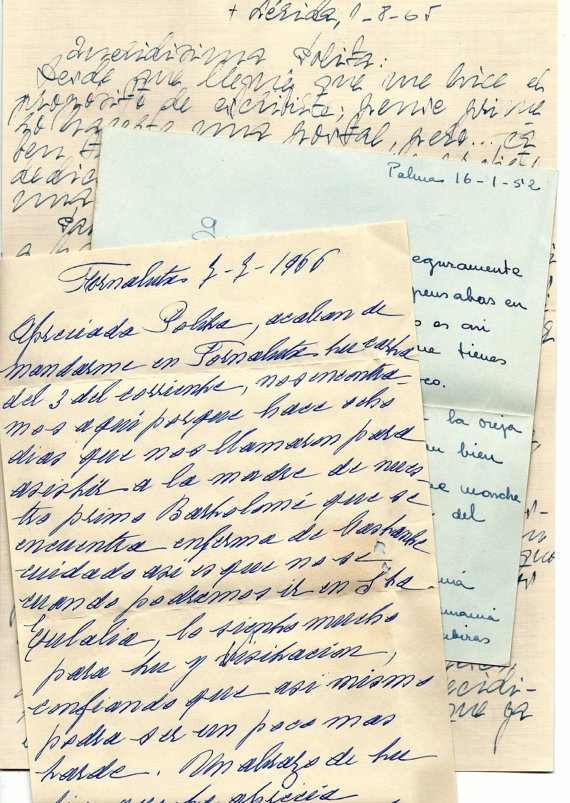 + Lérida, 1-8-65
Queridisima Polita:
Desde que llegué que me hice el
proposito de escribirte; pense prime
ro hacerte una postal, pero...
dedic
una
Palma 16-1-52
eguramente
pensabas en
o es asi
que tienes
co.
la oreja
bien
marche
del
má
mamá
Fornalutx 7-7-1966
Apreciada Polita, acaban de
mandarme en Fornalutx tu carta
del 3 del corriente, nos encontra-
mos aquí porque hace ocho
dias que nos llamaron para
asistir a la madre de nues
tro primo Bartholomé que se
encuentra enferma de bastante
cuidado asi es que no se
cuando podremos ir en Sta
Eulalia, lo siento mucho
para tu y Visitación,
confiando que asi mismo
podra ser un poco mas
tarde. Un abrazo de tu
aprecia
ecidi-
que ya